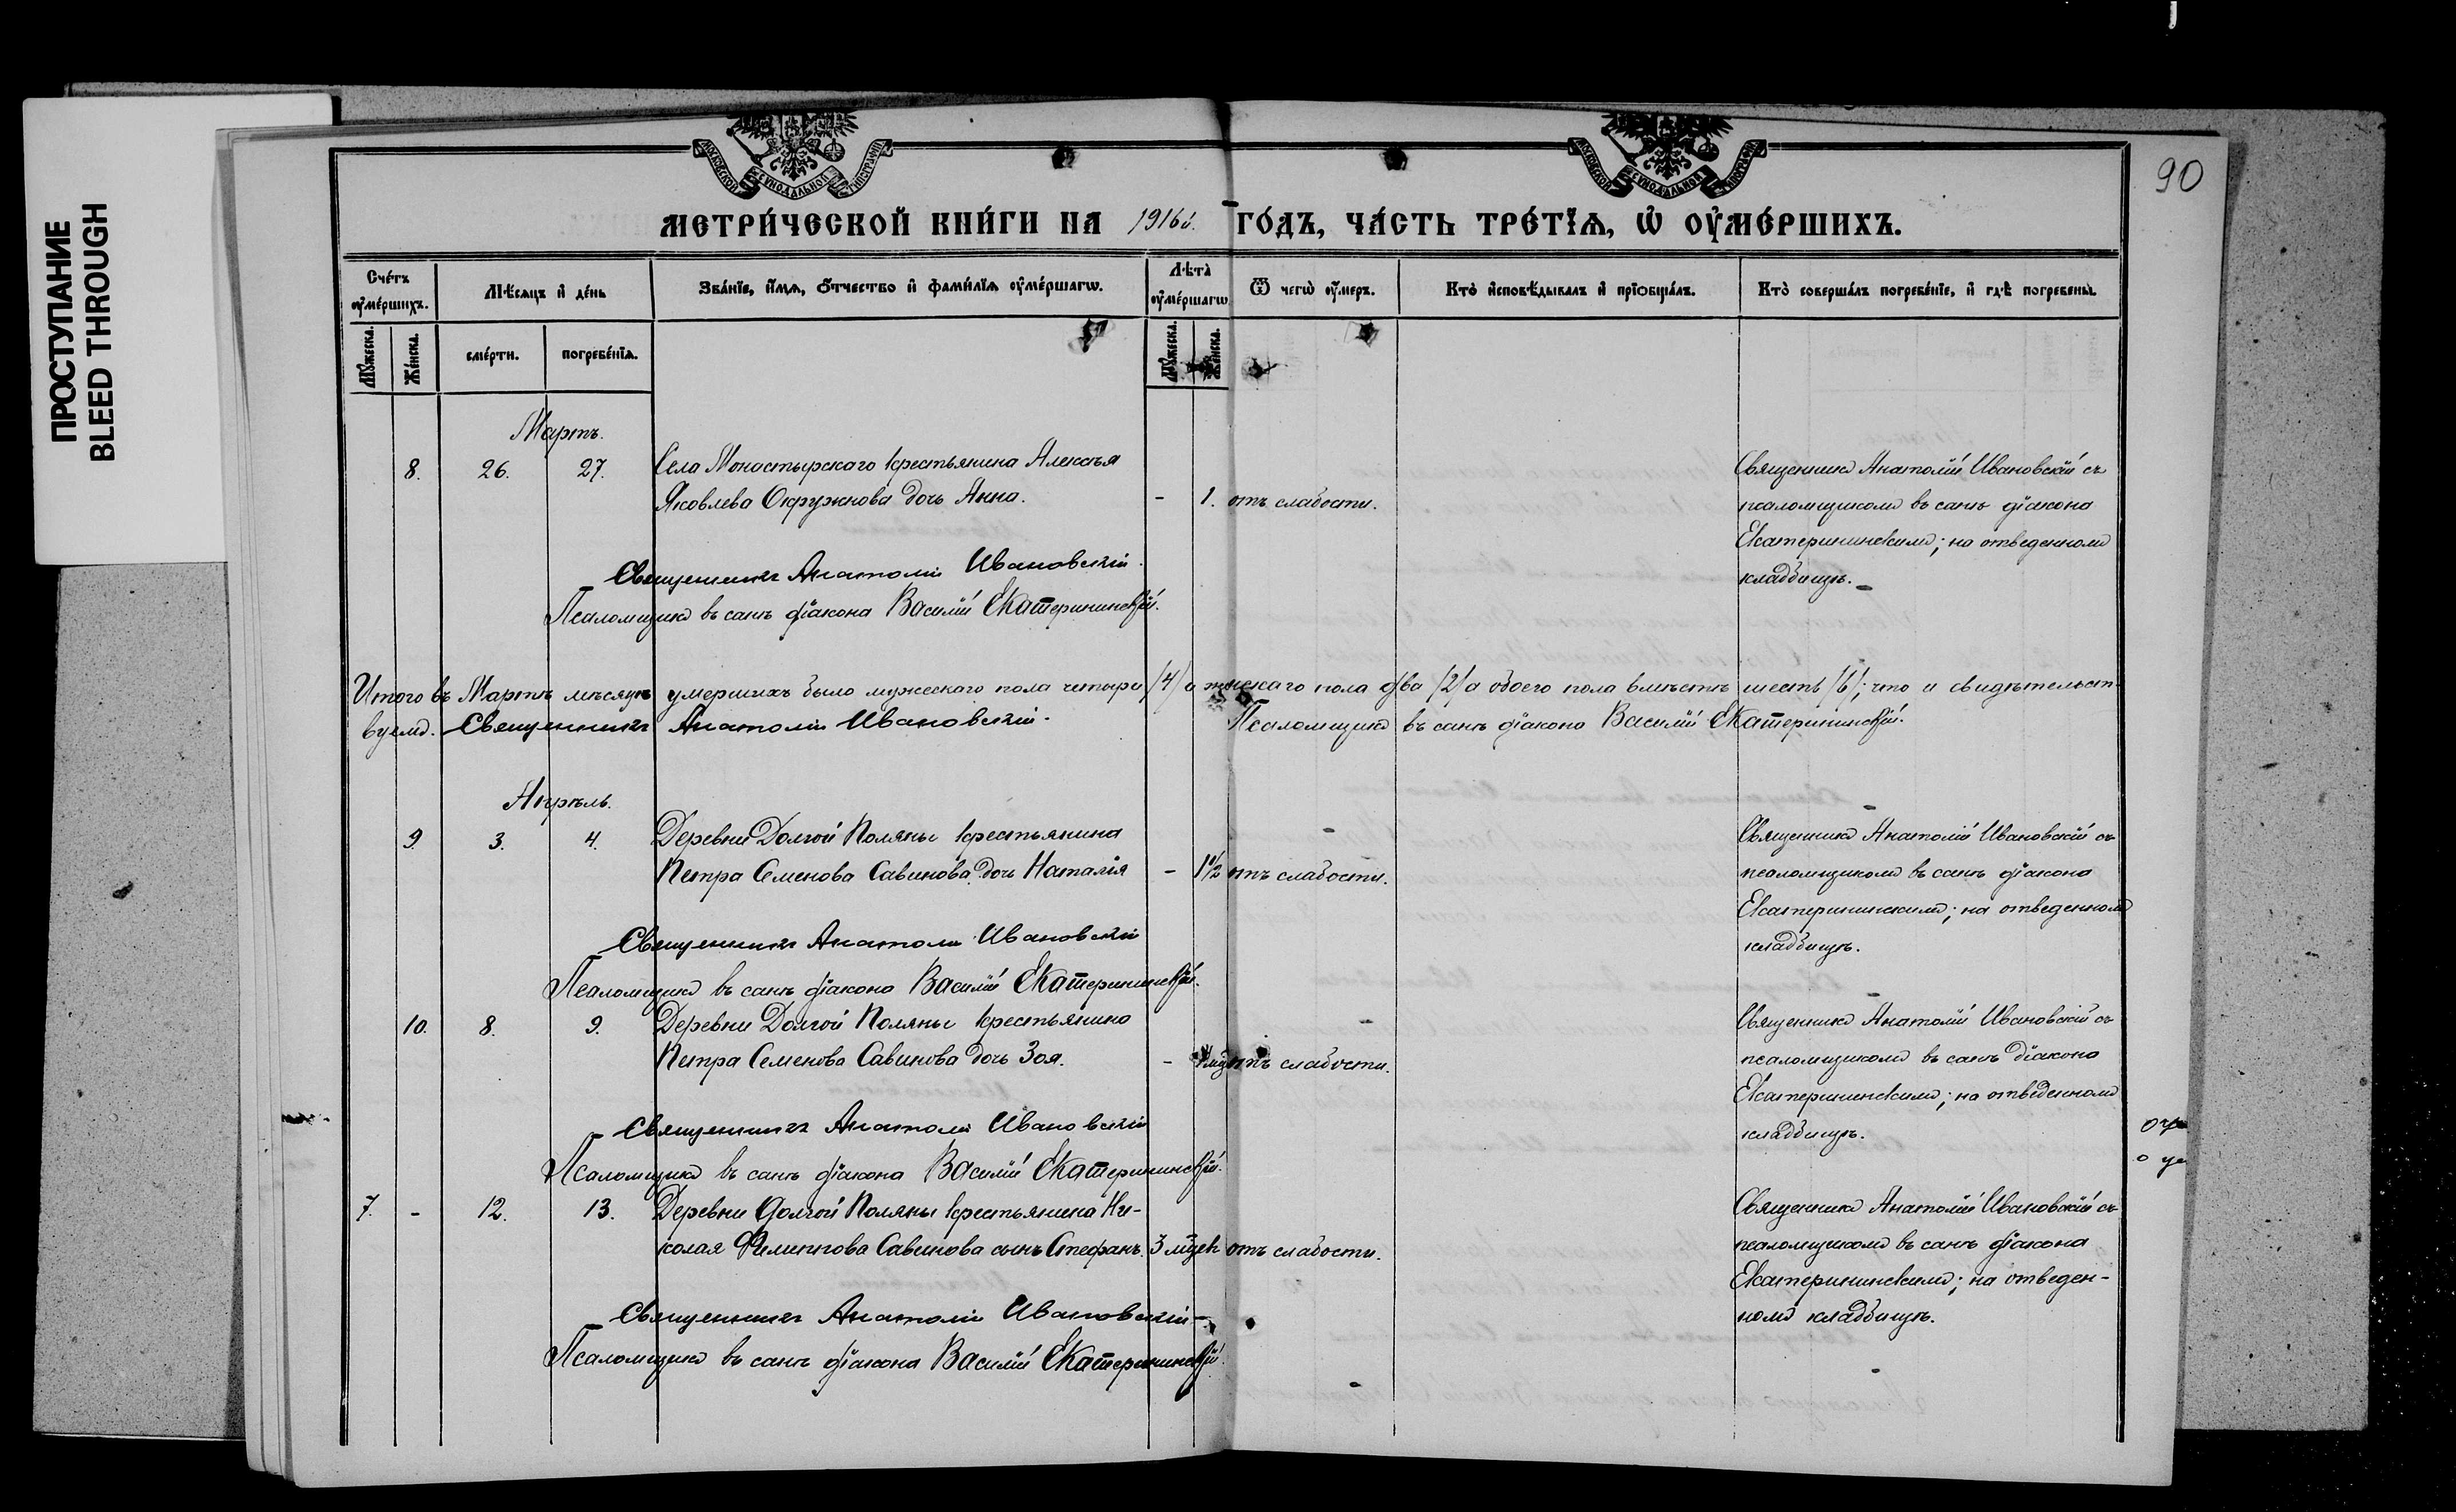 ПРОСТУПАНИЕ
BLEED THROUGH
МОСКОВСКОЙ СѴНОДАЛЬНОЙ ТИПОГРАФІИ
МОСКОВСКОЙ СѴНОДАЛЬНОЙ ТИПОГРАФІИ
90
МЕТРИ́ЧЕСКОЙ КНИ́ГИ НА 1916й. ГО́ДЪ, ЧА́СТЬ ТРЕ́ТЇѦ, Ѡ҆ ОУ҆МЕ́РШИХЪ.
Сче́тъ оу҆ме́ршихъ.
Мѣ́сѧцъ и҆ де́нь
Зва́нїе, и҆́мѧ, ѻ҆́тчество и҆ фами́лїѧ оу҆ме́ршагѡ.
Лѣ́та оу҆ме́ршагѡ
Ѿ чегѡ̀ оу҆́меръ.
Кто̀ и҆сповѣ́дывалъ и҆ прїѡбща́лъ.
Кто̀ соверша́лъ погребе́нїе, и҆ гдѣ̀ погребены̀.
Мꙋ́жеска. Же́нска. сме́рти. погребе́нїѧ. Мꙋ́жеска. Же́нска.
Мартъ.
8. 26. 27. Села Монастырскаго крестьянина Алексѣя
Яковлева Окружнова дочь Анна. - 1. отъ слабости.
Священникъ Анатолій Ивановскій съ
псаломщикомъ въ санѣ діакона
Екатерининскимъ; на отведенномъ
кладбищѣ.
Священникъ Анатолій Ивановскій.
Псаломщикъ въ санѣ діакона Василій Екатерининскій.
Итого въ Мартѣ мѣсяцѣ умершихъ было мужескаго пола четыре /4/ а женскаго пола два /2/ а обоего пола вмѣстѣ шесть /6/; что и свидѣтельст-
вуемъ. Священникъ Анатолій Ивановскій. Псаломщикъ въ санѣ діакона Василій Екатерининскій.
Апрѣль.
9. 3. 4. Деревни Долгой Поляны крестьянина
Петра Семенова Савинова дочь Наталія - 1½ отъ слабости.
Священникъ Анатолій Ивановскій съ
псаломщикомъ въ санѣ діакона
Екатерининскимъ; на отведенномъ
кладбищѣ.
Священникъ Анатолій Ивановскій
Псаломщикъ въ санѣ діакона Василій Екатерининскій.
10. 8. 9. Деревни Долгой Поляны крестьянина
Петра Семенова Савинова дочь Зоя. - отъ слабости.
Священникъ Анатолій Ивановскій съ
псаломщикомъ въ санѣ діакона
Екатерининскимъ; на отведенномъ
кладбищѣ.
Священникъ Анатолій Ивановскій
Псаломщикъ въ санѣ діакона Василій Екатерининскій.
7. - 12. 13. Деревни Долгой Поляны крестьянина Ни-
колая Филиппова Савинова сынъ Стефанъ. 3 мѣцев отъ слабости.
Священникъ Анатолій Ивановскій съ
псаломщикомъ въ санѣ діакона
Екатерининскимъ; на отведен-
номъ кладбищѣ.
Священникъ Анатолій Ивановскій
Псаломщикъ въ санѣ діакона Василій Екатерининскій.